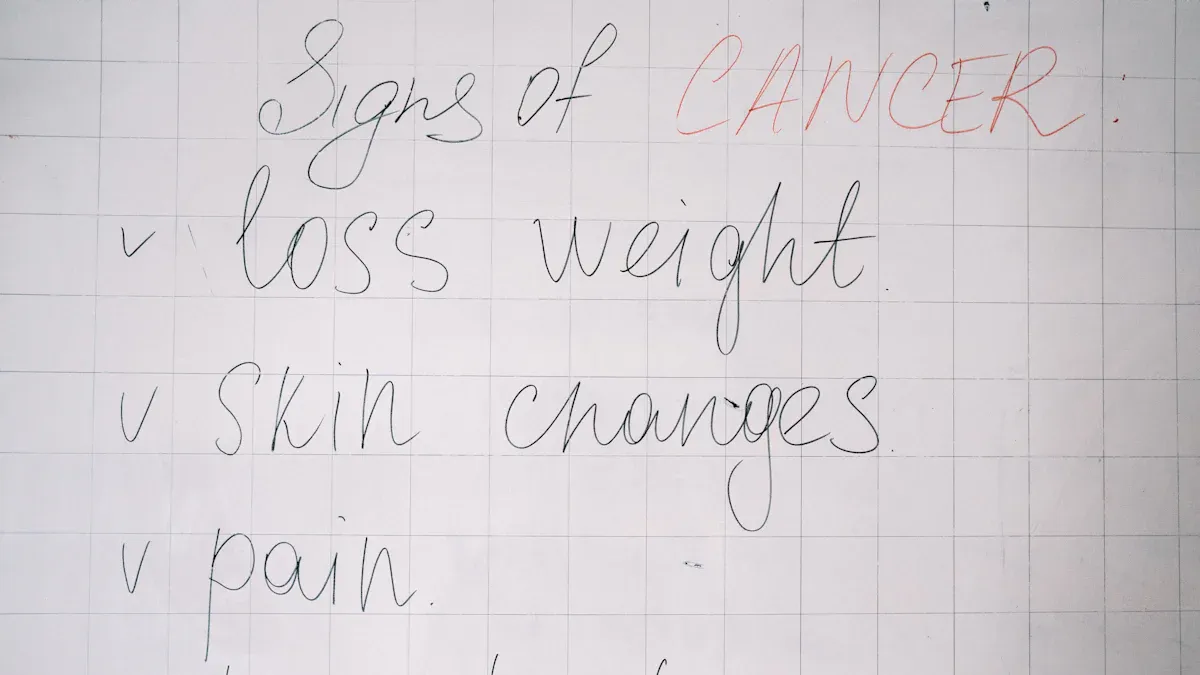 Signs of CANCER:
v loss weight.
v skin changes.
v pain.